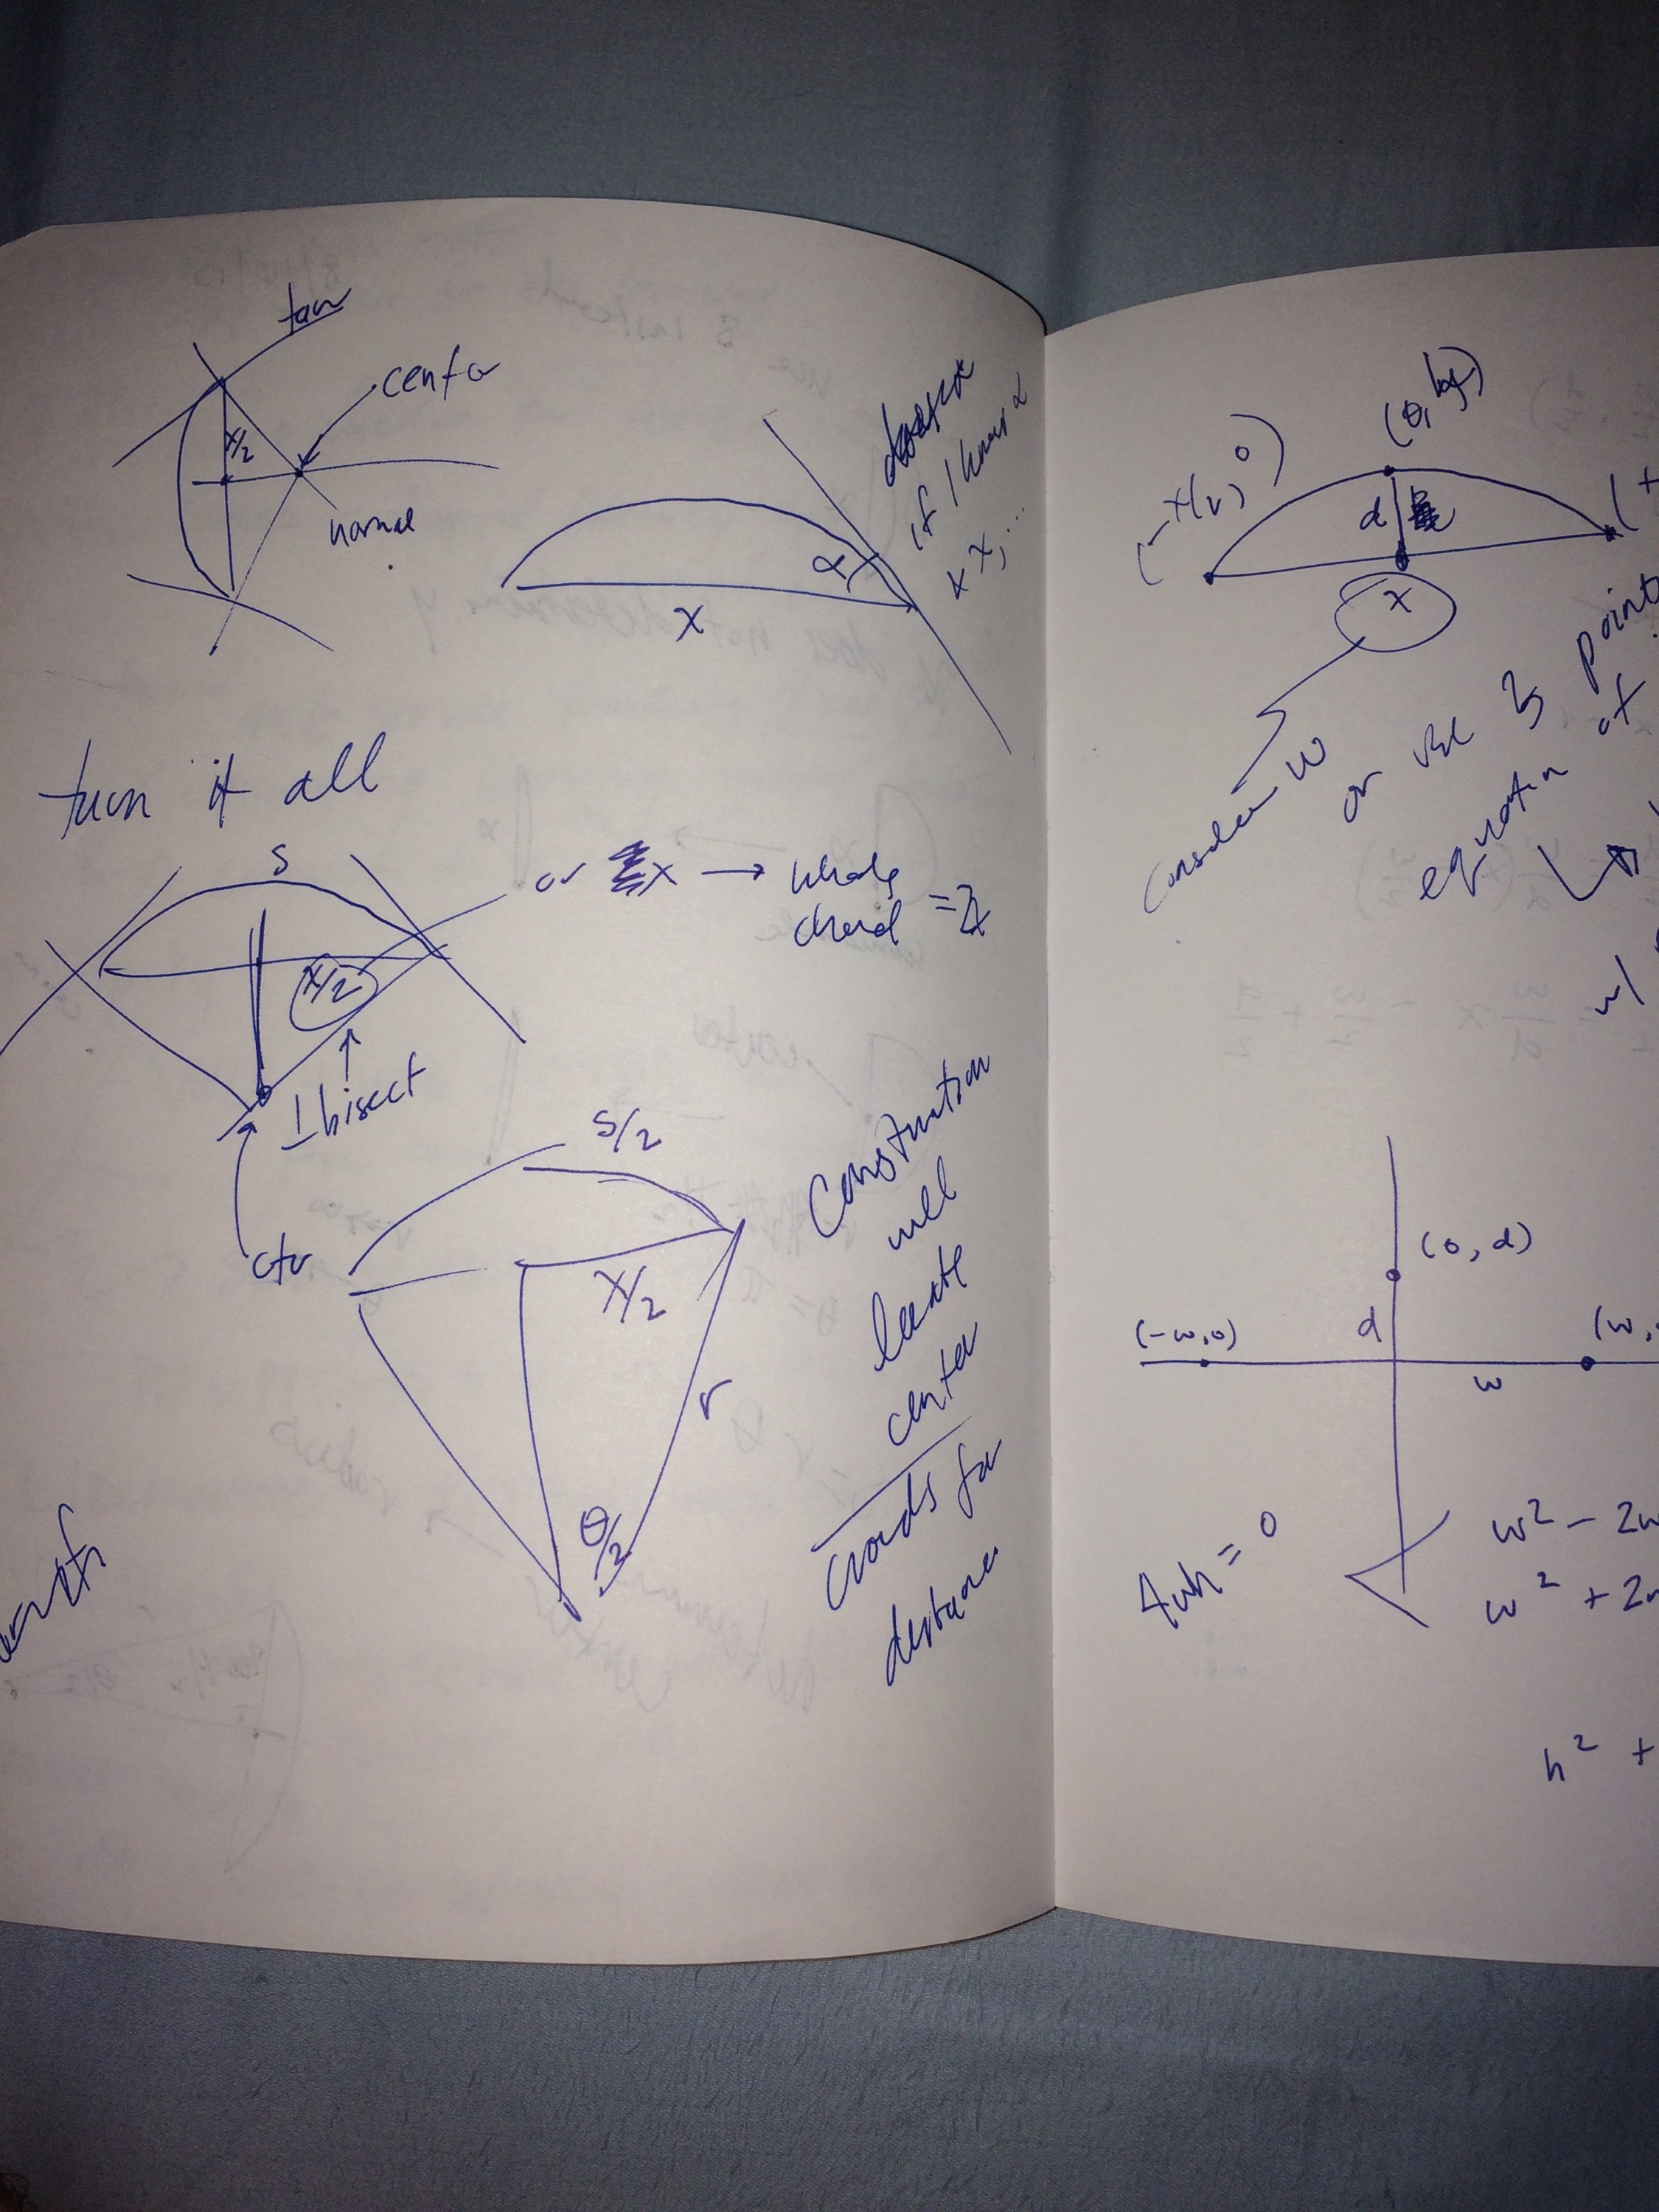 tan
center
x/2
normal
α
if I know α
& x, ...
x
turn it all
s
or x → whole
chord =
x/2
⊥ bisect
ctr
s/2
x/2
r
θ/2
Construction
will
locate
center
coords for
distance
(-x/2, 0)
d
x
consider w
or use 3 points
equation of
w/
(0, d)
(-w, 0)
d
w
4wh = 0
w² - 2w
w² + 2w
h² +